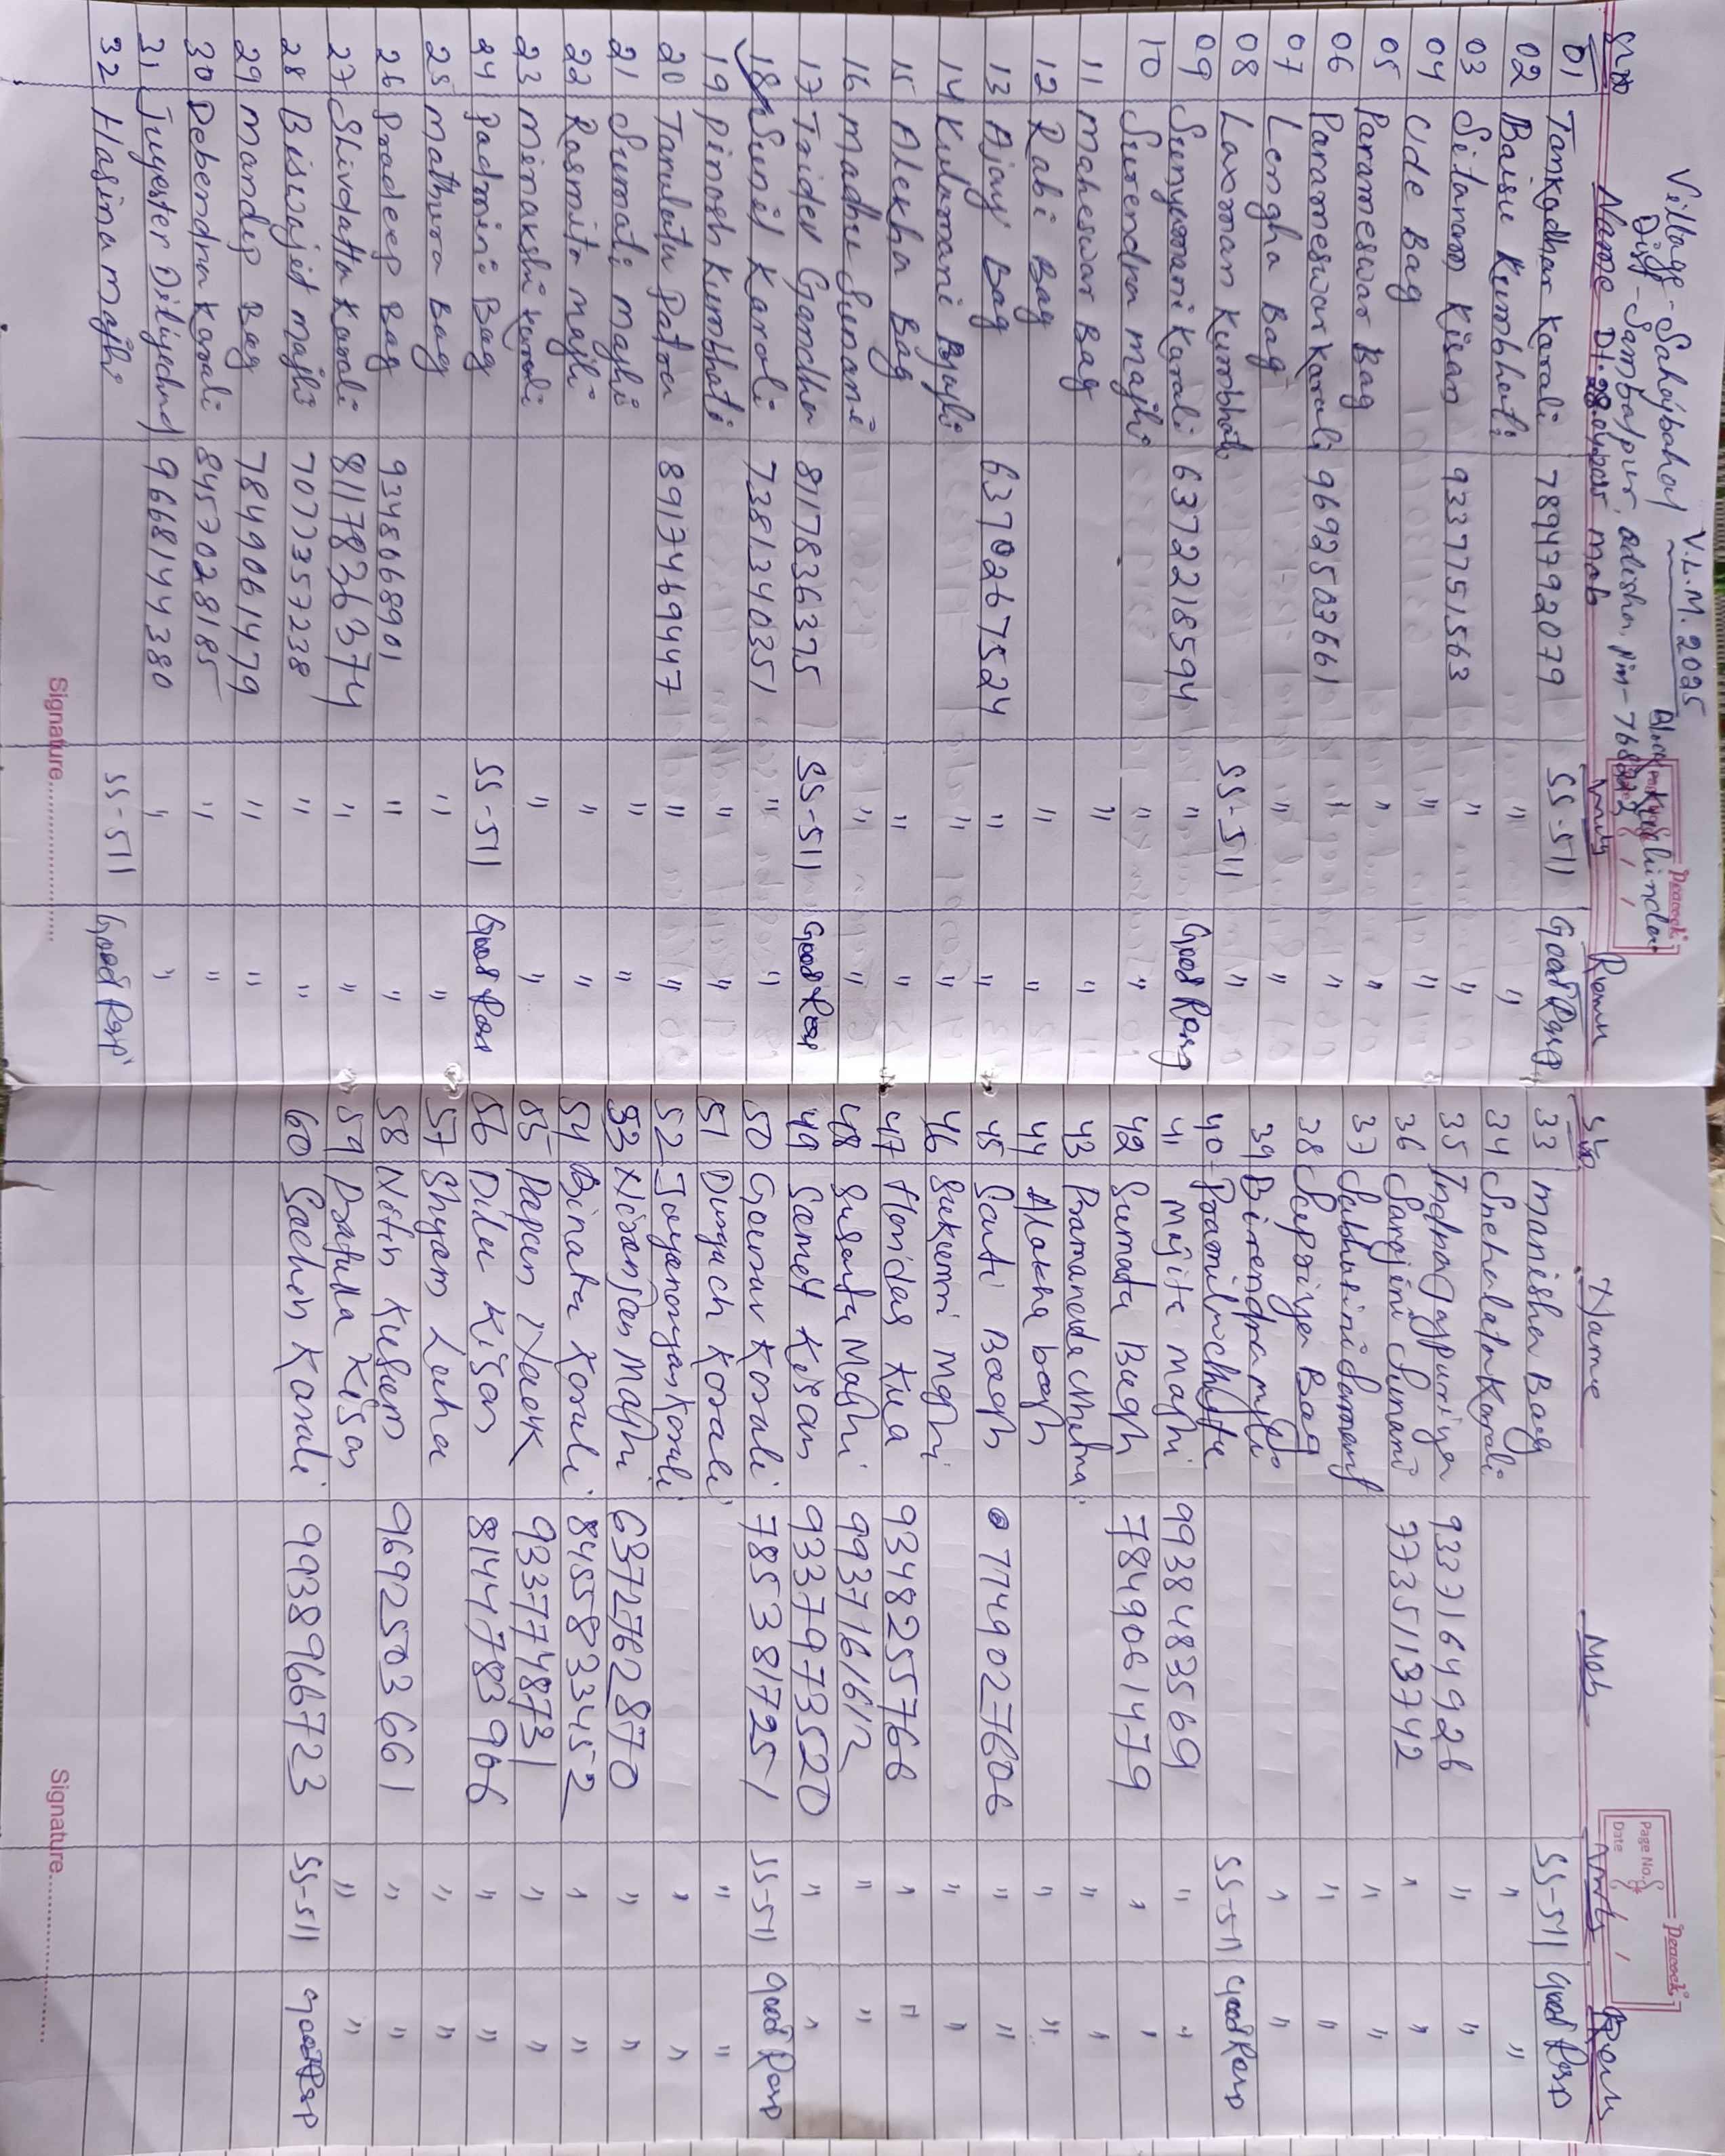 Village - Sahajbahal V.L.M. 2025 Block Kuchinda
Dist - Sambalpur, Odisha, Pin-768222
SNo Name Dt. 28 mob Amts Rem
01 Tankadhar Karali 7894792079 SS-511 Good Resp
02 Baisu Kumbhati " "
03 Sitaram Kisan 9337751563 " "
04 Ude Bag " "
05 Parameswar Bag " "
06 Parameswar Karali 9692503661 " "
07 Lengha Bag " "
08 Laxman Kumbhati SS-511 "
09 Karali 6372218594 " Good Resp
10 Surendra majhi " "
11 Maheswar Bag " "
12 Rabi Bag " "
13 Ajay Bag 6370267524 " "
14 Kulamani " "
15 Alekha Bag " "
16 Madhu Sunani " "
17 Gandha 817836375 SS-511 Good Resp
18 Sunil Karoli 7381340351 " "
19 Pinash Kumbhati " "
20 Tarulata Patra 8917469447 " "
21 Sumati majhi " "
22 Rasmita majhi " "
23 Minakshi Karoli " "
24 Padmini Bag SS-511 Good Res
25 Mathura Bag " "
26 Pradeep Bag 9348668901 " "
27 Shivdatta Karali 8117836374 " "
28 Biswajit majhi 7077357238 " "
29 Mandip Bag 7849061479 " "
30 Debendra Karali 8457028185 " "
31 Jugester 9668144380 " "
32 Hasina majhi SS-511 Good Resp
Signature
SNo. Name Mob Amts Rem
33 manisha Bag SS-511 Good Resp
34 Snehalata Karali " "
35 Indra Jaypuriya 9337164926 " "
36 Sarojini Sunani 7735113742 " "
37 " "
38 Supriya Bag " "
39 Birendra majhi " "
40 SS-511 Good Resp
41 Mujita Majhi 9938483569 " "
42 Sumata Bagh 7849061479 " "
43 Pramananda Chhatria " "
44 Alakha bagh " "
45 Santi Bagh 7749027606 " "
46 Sukumri Majhi " "
47 Haridas Kua 9348255766 " "
48 Susanta Majhi 9937161612 " "
49 Samet Kisan 9337973520 " "
50 Gourav Korali 7853381725 1 SS-511 Good Resp
51 Karali " "
52 Jayanarayan Karali " "
53 Niranjan Majhi 6372762870 " "
54 Binata Korali 8455833452 " "
55 Papun Naek 9337748731 " "
56 Dilu Kisan 8144783966 " "
57 Shyam Luha " "
58 Nitin Kusum 9692503661 " "
59 Prafulla Kisan " "
60 Sachin Karali 9938966723 SS-511 Good Resp
Signature
Peacock
Page No.
Date
Peacock